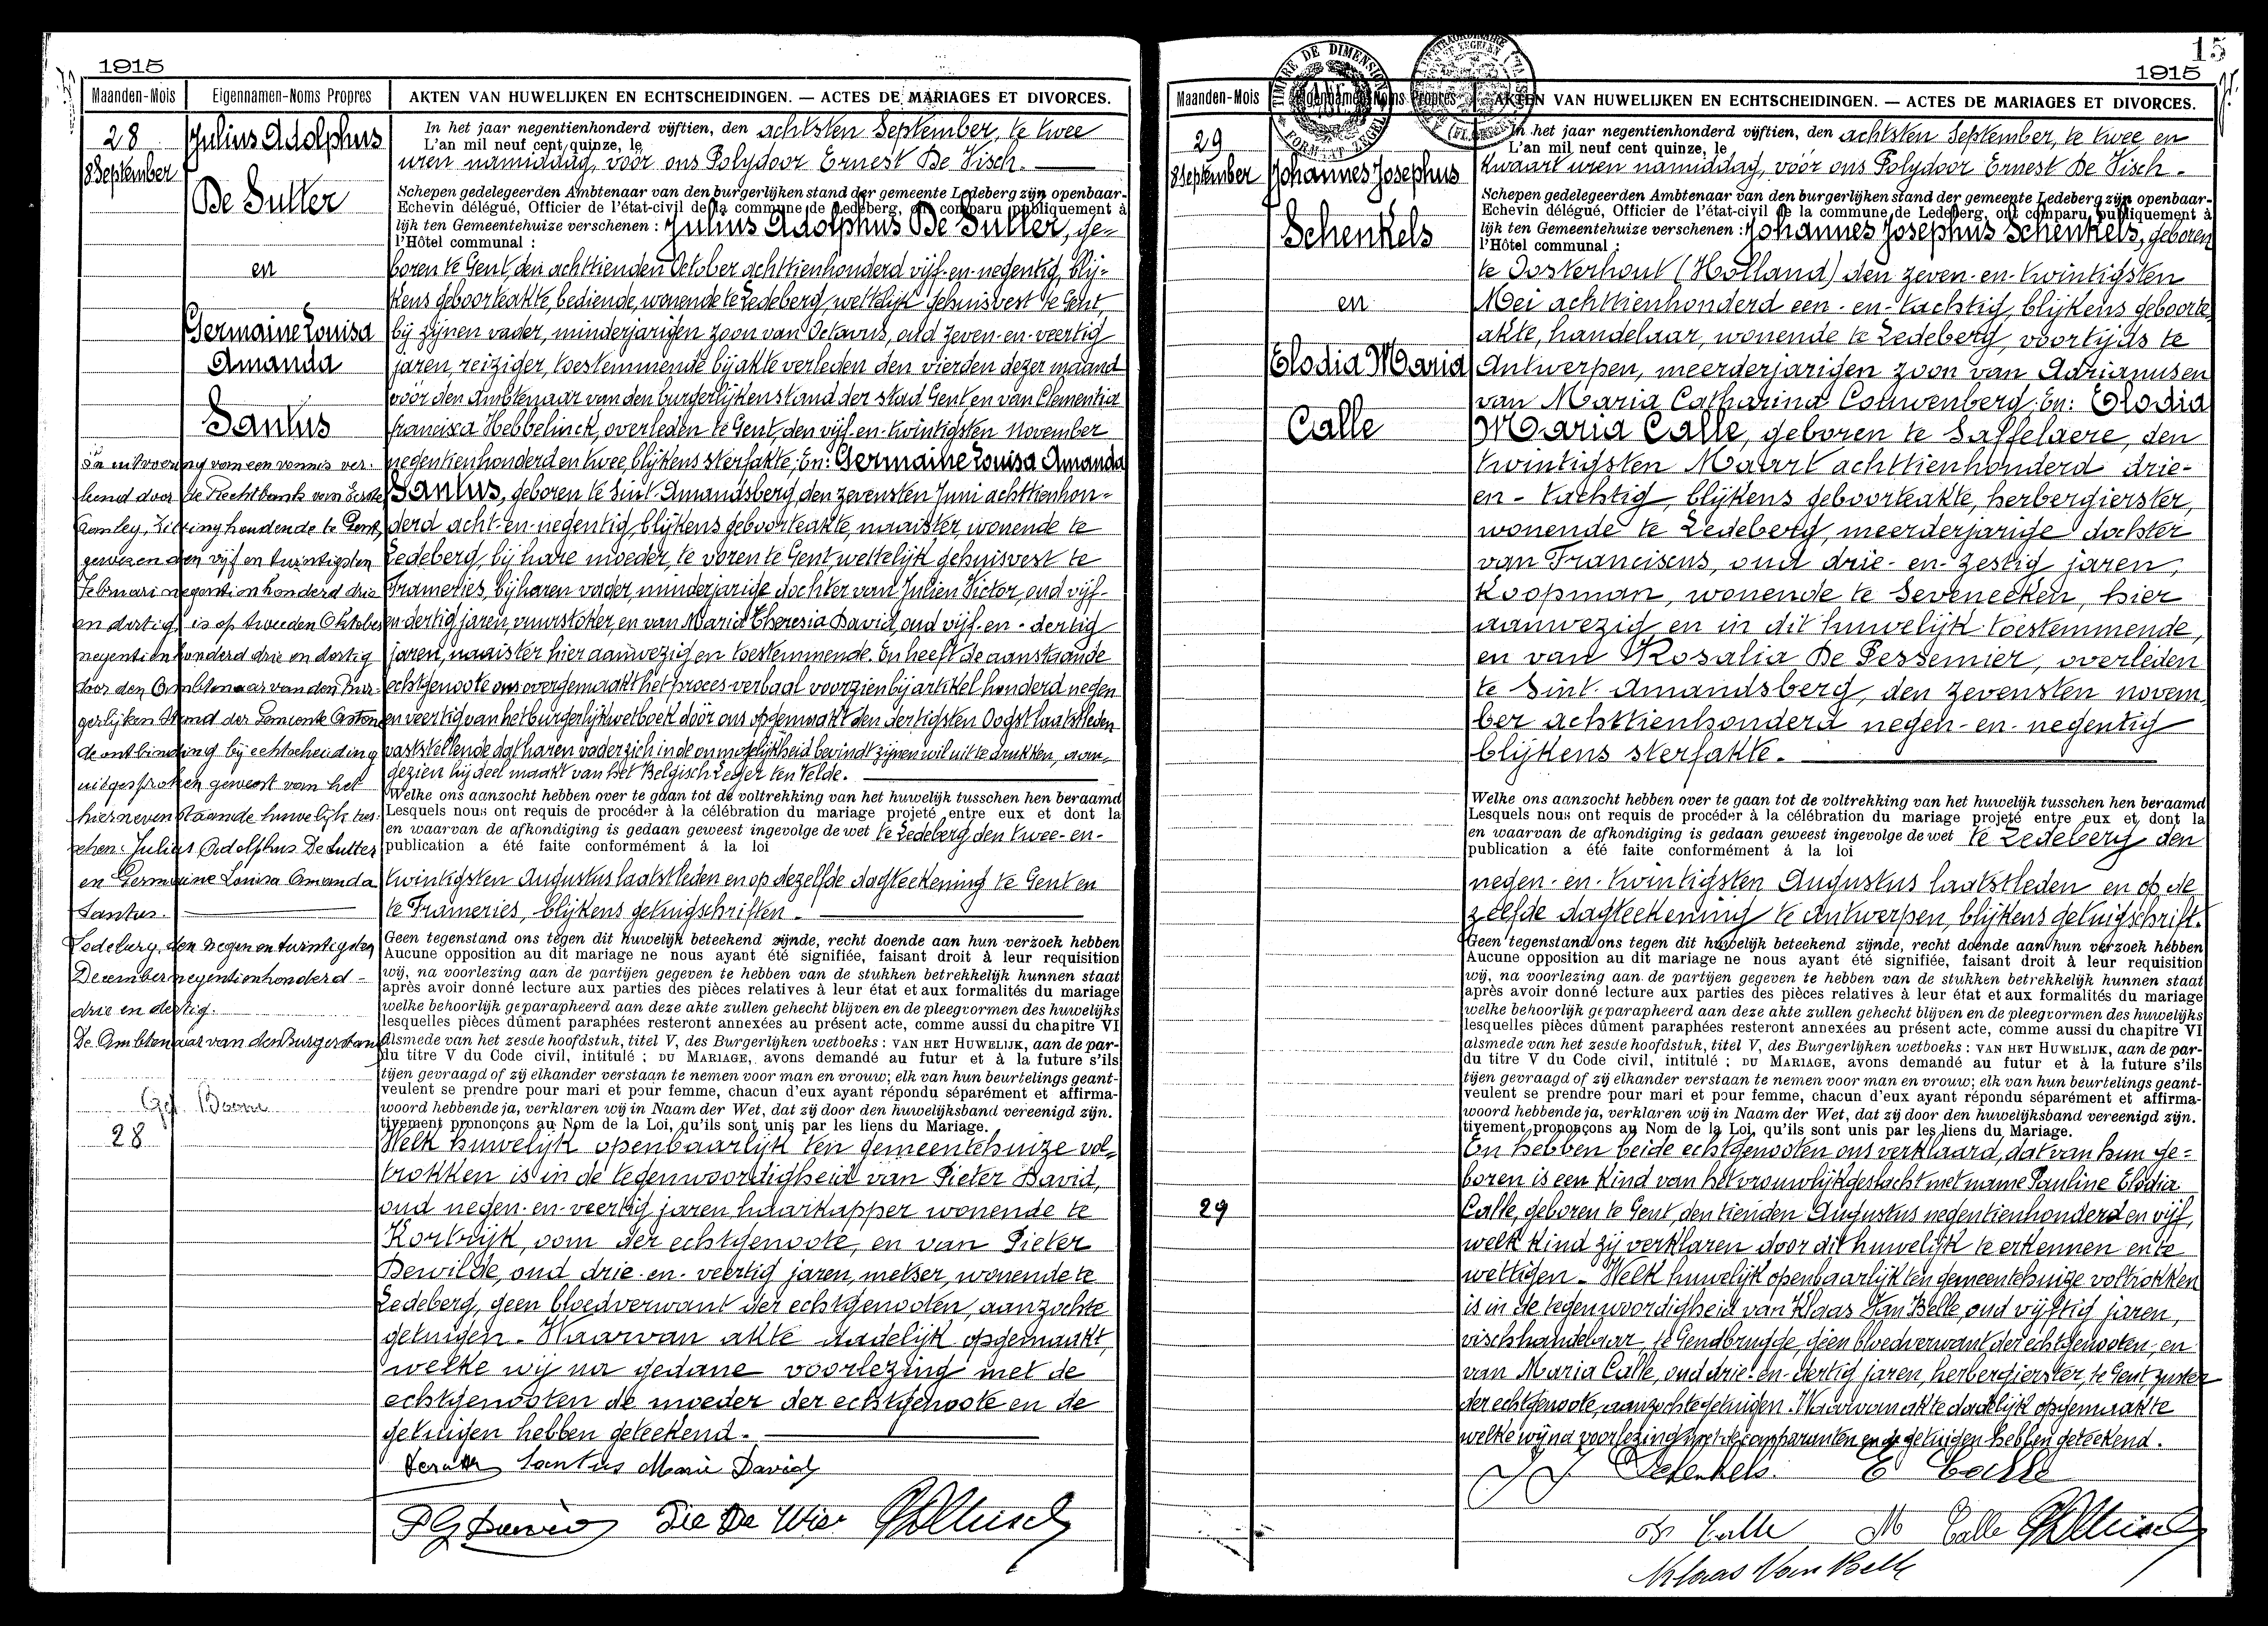 1915
Maanden-Mois
Eigennamen-Noms Propres
AKTEN VAN HUWELIJKEN EN ECHTSCHEIDINGEN. — ACTES DE MARIAGES ET DIVORCES.
28
8 September
Julius Adolphus
De Sutter
en
Germaine Louisa
Amanda
Santus
In uitvoering van een vonnis ver-
leend door de Rechtbank van Eerste
Aanleg, Zitting houdende te Gent,
gewezen den vijf en twintigsten
Februari negentienhonderd drie
en dertig, is op tweeden Oktober
negentienhonderd drie en dertig
door den Ambtenaar van den Bur-
gerlijken Stand der Gemeente
de ontbinding bij echtscheiding
uitgesproken geweest van het
hiernevenstaande huwelijk tus-
schen: Julius Adolphus De Sutter
en Germaine Louisa Amanda
Santus.
Ledeberg, den negen en twintigsten
December negentienhonderd -
drie en dertig.
De Ambtenaar van den Burgerstand
Get. Boone
28
In het jaar negentienhonderd vijftien, den achtsten September, te twee
L'an mil neuf cent quinze, le
uren namiddag, vóór ons Polydoor Ernest De Visch.
Schepen gedelegeerden Ambtenaar van den burgerlijken stand der gemeente Ledeberg zijn openbaar-
Echevin délégué, Officier de l'état-civil de la commune de Ledeberg, ont comparu publiquement à
lijk ten Gemeentehuize verschenen : Julius Adolphus De Sutter, ge-
l'Hôtel communal :
boren te Gent, den achttienden October achttienhonderd vijf-en-negentig, blij-
kens geboorteakte, bediende, wonende te Ledeberg, wettelijk gehuisvest te Gent,
bij zijnen vader, minderjarigen zoon van Octavus, oud zeven-en-veertig
jaren, reiziger, toestemmende bij akte verleden den vierden dezer maand
vóór den Ambtenaar van den burgerlijken stand der stad Gent en van Clementia
Francisca Hebbelinck, overleden te Gent, den vijf-en-twintigsten November
negentienhonderd en twee, blijkens sterfakte; En: Germaine Louisa Amanda
Santus, geboren te Sint-Amandsberg, den zevensten Juni achttienhon-
derd acht-en-negentig, blijkens geboorteakte, naaister, wonende te
Ledeberg, bij hare moeder, te voren te Gent, wettelijk gehuisvest te
Frameries, bij haren vader, minderjarige dochter van Julien Victor, oud vijf-
en-dertig jaren, vuurstoker, en van Maria Theresia David, oud vijf-en-dertig
jaren, naaister hier aanwezig en toestemmende. En heeft de aanstaande
echtgenoote ons overgemaakt het proces-verbaal voorzien bij artikel honderd negen
en veertig van het burgerlijk wetboek door ons opgemaakt den dertigsten Oogst laatstleden
vaststellende dat haren vader zich in de onmogelijkheid bevindt zijnen wil uit te drukken, aan-
gezien hij deel maakt van het Belgisch Leger ten Velde.
Welke ons aanzocht hebben over te gaan tot de voltrekking van het huwelijk tusschen hen beraamd
Lesquels nous ont requis de procéder à la célébration du mariage projeté entre eux et dont la
en waarvan de afkondiging is gedaan geweest ingevolge de wet te Ledeberg den twee-en-
publication a été faite conformément à la loi
twintigsten Augustus laatstleden en op dezelfde dagteekening te Gent en
te Frameries, blijkens getuigschriften.
Geen tegenstand ons tegen dit huwelijk beteekend zijnde, recht doende aan hun verzoek hebben
Aucune opposition au dit mariage ne nous ayant été signifiée, faisant droit à leur requisition
wij, na voorlezing aan de partijen gegeven te hebben van de stukken betrekkelijk hunnen staat
après avoir donné lecture aux parties des pièces relatives à leur état et aux formalités du mariage
welke behoorlijk geparapheerd aan deze akte zullen gehecht blijven en de pleegvormen des huwelijks
lesquelles pièces dûment paraphées resteront annexées au présent acte, comme aussi du chapitre VI
alsmede van het zesde hoofdstuk, titel V, des Burgerlijken wetboeks : VAN HET HUWELIJK, aan de par-
du titre V du Code civil, intitulé : DU MARIAGE, avons demandé au futur et à la future s'ils
tijen gevraagd of zij elkander verstaan te nemen voor man en vrouw; elk van hun beurtelings geant-
veulent se prendre pour mari et pour femme, chacun d'eux ayant répondu séparément et affirma-
woord hebbende ja, verklaren wij in Naam der Wet, dat zij door den huwelijksband vereenigd zijn.
tivement prononçons au Nom de la Loi, qu'ils sont unis par les liens du Mariage.
Welk huwelijk openbaarlijk ten gemeentehuize vol-
trokken is in de tegenwoordigheid van Pieter David,
oud negen-en-veertig jaren haarkapper wonende te
Kortrijk, oom der echtgenoote, en van Pieter
Dewilde, oud drie-en-veertig jaren, metser, wonende te
Ledeberg, geen bloedverwant der echtgenooten, aanzochte
getuigen. Waarvan akte dadelijk opgemaakt,
welke wij na gedane voorlezing met de
echtgenooten de moeder der echtgenoote en de
getuigen hebben geteekend.
Santus Marie David
PG David
15
1915
TIMBRE DE DIMENSION
FORMAAT ZEGEL
Maanden-Mois
Eigennamen-Noms Propres
AKTEN VAN HUWELIJKEN EN ECHTSCHEIDINGEN. — ACTES DE MARIAGES ET DIVORCES.
29
8 September
Johannes Josephus
Schenkels
en
Elodia Maria
Calle
29
In het jaar negentienhonderd vijftien, den achtsten September, te twee en
L'an mil neuf cent quinze, le
kwaart uren namiddag, vóór ons Polydoor Ernest De Visch.
Schepen gedelegeerden Ambtenaar van den burgerlijken stand der gemeente Ledeberg zijn openbaar-
Echevin délégué, Officier de l'état-civil de la commune de Ledeberg, ont comparu publiquement à
lijk ten Gemeentehuize verschenen : Johannes Josephus Schenkels, geboren
l'Hôtel communal :
te Oosterhout (Holland) den zeven-en-twintigsten
Mei achttienhonderd een-en-tachtig, blijkens geboorte
akte, handelaar, wonende te Ledeberg, voortijds te
Antwerpen, meerderjarigen zoon van Adrianus en
van Maria Catharina Couwenberg; En: Elodia
Maria Calle, geboren te Saffelaere, den
twintigsten Maart achttienhonderd drie-
en-tachtig, blijkens geboorteakte, herbergierster,
wonende te Ledeberg, meerderjarige dochter
van Franciscus, oud drie-en-zestig jaren,
koopman, wonende te Seveneeken, hier
aanwezig en in dit huwelijk toestemmende,
en van Rosalia De Pessemier, overleden
te Sint-Amandsberg, den zevensten novem-
ber achttienhonderd negen-en-negentig
blijkens sterfakte.
Welke ons aanzocht hebben over te gaan tot de voltrekking van het huwelijk tusschen hen beraamd
Lesquels nous ont requis de procéder à la célébration du mariage projeté entre eux et dont la
en waarvan de afkondiging is gedaan geweest ingevolge de wet te Ledeberg den
publication a été faite conformément à la loi
negen-en-twintigsten Augustus laatstleden en op de
zelfde dagteekening te Antwerpen, blijkens getuigschrift.
Geen tegenstand ons tegen dit huwelijk beteekend zijnde, recht doende aan hun verzoek hebben
Aucune opposition au dit mariage ne nous ayant été signifiée, faisant droit à leur requisition
wij, na voorlezing aan de partijen gegeven te hebben van de stukken betrekkelijk hunnen staat
après avoir donné lecture aux parties des pièces relatives à leur état et aux formalités du mariage
welke behoorlijk geparapheerd aan deze akte zullen gehecht blijven en de pleegvormen des huwelijks
lesquelles pièces dûment paraphées resteront annexées au présent acte, comme aussi du chapitre VI
alsmede van het zesde hoofdstuk, titel V, des Burgerlijken wetboeks : VAN HET HUWELIJK, aan de par-
du titre V du Code civil, intitulé : DU MARIAGE, avons demandé au futur et à la future s'ils
tijen gevraagd of zij elkander verstaan te nemen voor man en vrouw; elk van hun beurtelings geant-
veulent se prendre pour mari et pour femme, chacun d'eux ayant répondu séparément et affirma-
woord hebbende ja, verklaren wij in Naam der Wet, dat zij door den huwelijksband vereenigd zijn.
tivement prononçons au Nom de la Loi, qu'ils sont unis par les liens du Mariage.
En hebben beide echtgenooten ons verklaard, dat van hun ge-
boren is een kind van het vrouwlijk geslacht met name Pauline Elodia
Calle, geboren te Gent, den tienden Augustus negentienhonderd en vijf,
welk kind zij verklaren door dit huwelijk te erkennen en te
wettigen. Welk huwelijk openbaarlijk ten gemeentehuize voltrokken
is in de tegenwoordigheid van Klaas Van Belle, oud vijftig jaren,
vischhandelaar, te Gendbrugge, geen bloedverwant der echtgenooten, en
van Maria Calle, oud drie-en-dertig jaren, herbergierster, te Gent, zuster
der echtgenoote, aanzochte getuigen. Waarvan akte dadelijk opgemaakt
welke wij na voorlezing met de comparanten en de getuigen hebben geteekend.
Schenkels. E Calle
Fr Calle M Calle
Klaas Van Belle